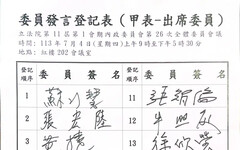 委員發言登記表（甲表-出席委員）
立法院第11屆第1會期內政委員會第26次全體委員會議
時間：113年7月4日(星期四)上午9時至下午5時30分
地點：紅樓202會議室
登記順序 委員簽名 登記順序 委員簽名
1 蘇巧慧 11 張
2 張宏陸 12
3 13 徐欣瑩